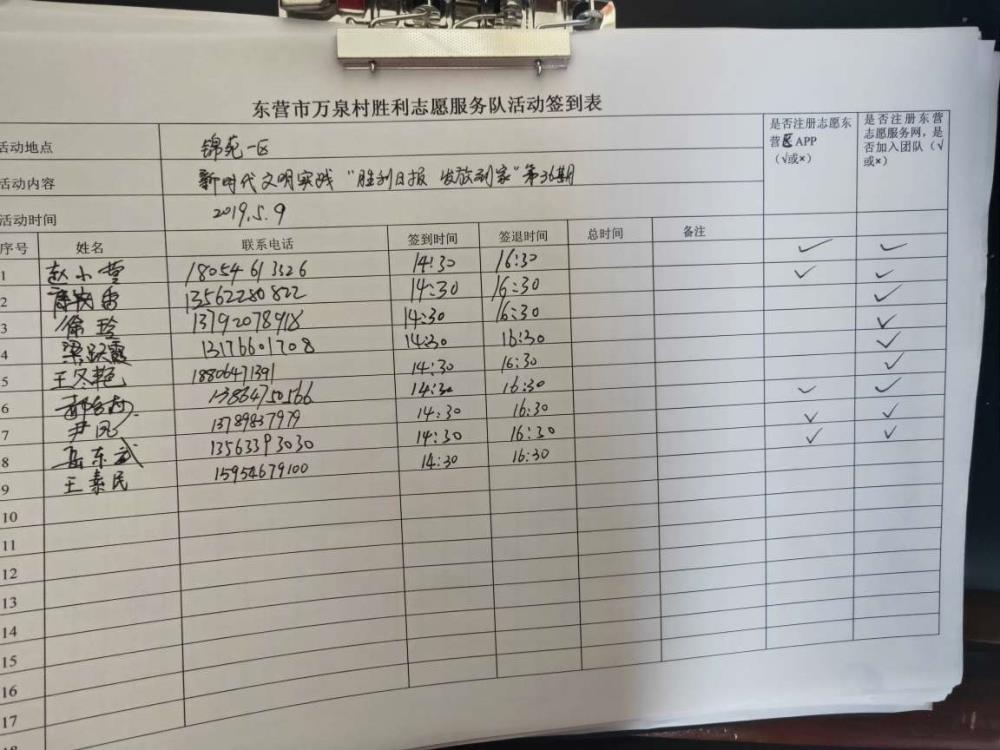 东营市万泉村胜利志愿服务队活动签到表
活动地点 锦苑一区 是否注册志愿东营区APP（√或×） 是否注册东营志愿服务网，是否加入团队（√或×）
活动内容 新时代文明实践“胜利日报 发放到家”第36期
活动时间 2019.5.9
序号 姓名 联系电话 签到时间 签退时间 总时间 备注
1 赵小莹 18054613326 14:30 16:30 ✓ ✓
2 13562280822 14:30 16:30 ✓ ✓
3 徐玲 13792078918 14:30 16:30 ✓
4 梁跃霞 13176601708 14:30 16:30 ✓
5 王冬艳 18806471391 14:30 16:30 ✓
6 13864750566 14:30 16:30 ✓
7 尹凤 13789837979 14:30 16:30 ✓ ✓
8 岳东武 13563393030 14:30 16:30 ✓ ✓
9 王素民 15954679100 14:30 16:30 ✓ ✓
10
11
12
13
14
15
16
17
18